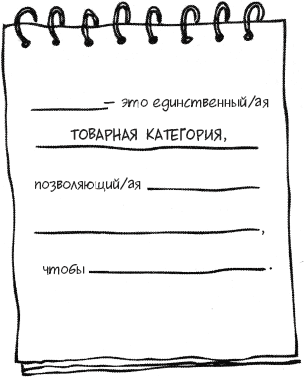 ________ – это единственный/ая
ТОВАРНАЯ КАТЕГОРИЯ,
позволяющий/ая ________
________,
чтобы ________.